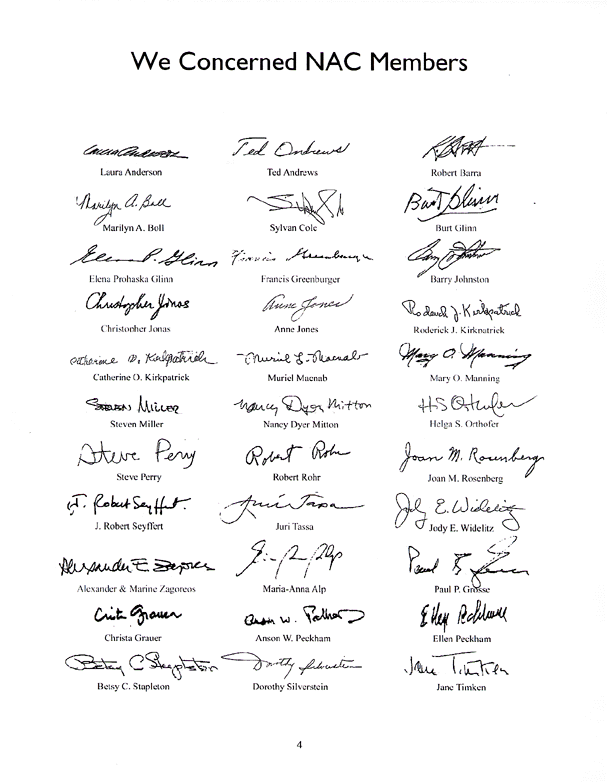 We Concerned NAC Members
Laura Anderson Ted Andrews
Laura Anderson Ted Andrews Robert Barra
Marilyn A. Boll Burt Glinn
Marilyn A. Boll Sylvan Cole Burt Glinn
Elena P. Glinn Francis Greenburger Barry Johnston
Elena Prohaska Glinn Francis Greenburger Barry Johnston
Christopher Jonas Anne Jones Roderick J. Kirkpatrick
Christopher Jonas Anne Jones Roderick J. Kirkpatrick
Catherine O. Kirkpatrick Muriel L. Macnab Mary O. Manning
Catherine O. Kirkpatrick Muriel Macnab Mary O. Manning
Steven Miller Nancy Dyer Mitton HS Orthofer
Steven Miller Nancy Dyer Mitton Helga S. Orthofer
Steve Perry Robert Rohr Joan M. Rosenberg
Steve Perry Robert Rohr Joan M. Rosenberg
J. Robert Seyffert Juri Tassa Jody E. Widelitz
J. Robert Seyffert Juri Tassa Jody E. Widelitz
Alexander & Marine Zagoreos Maria-Anna Alp Paul P. Grosse
Christa Grauer
Christa Grauer Anson W. Peckham Ellen Peckham
Betsy C Stapleton Dorothy Silverstein Jane Timken
Betsy C. Stapleton Dorothy Silverstein Jane Timken
4